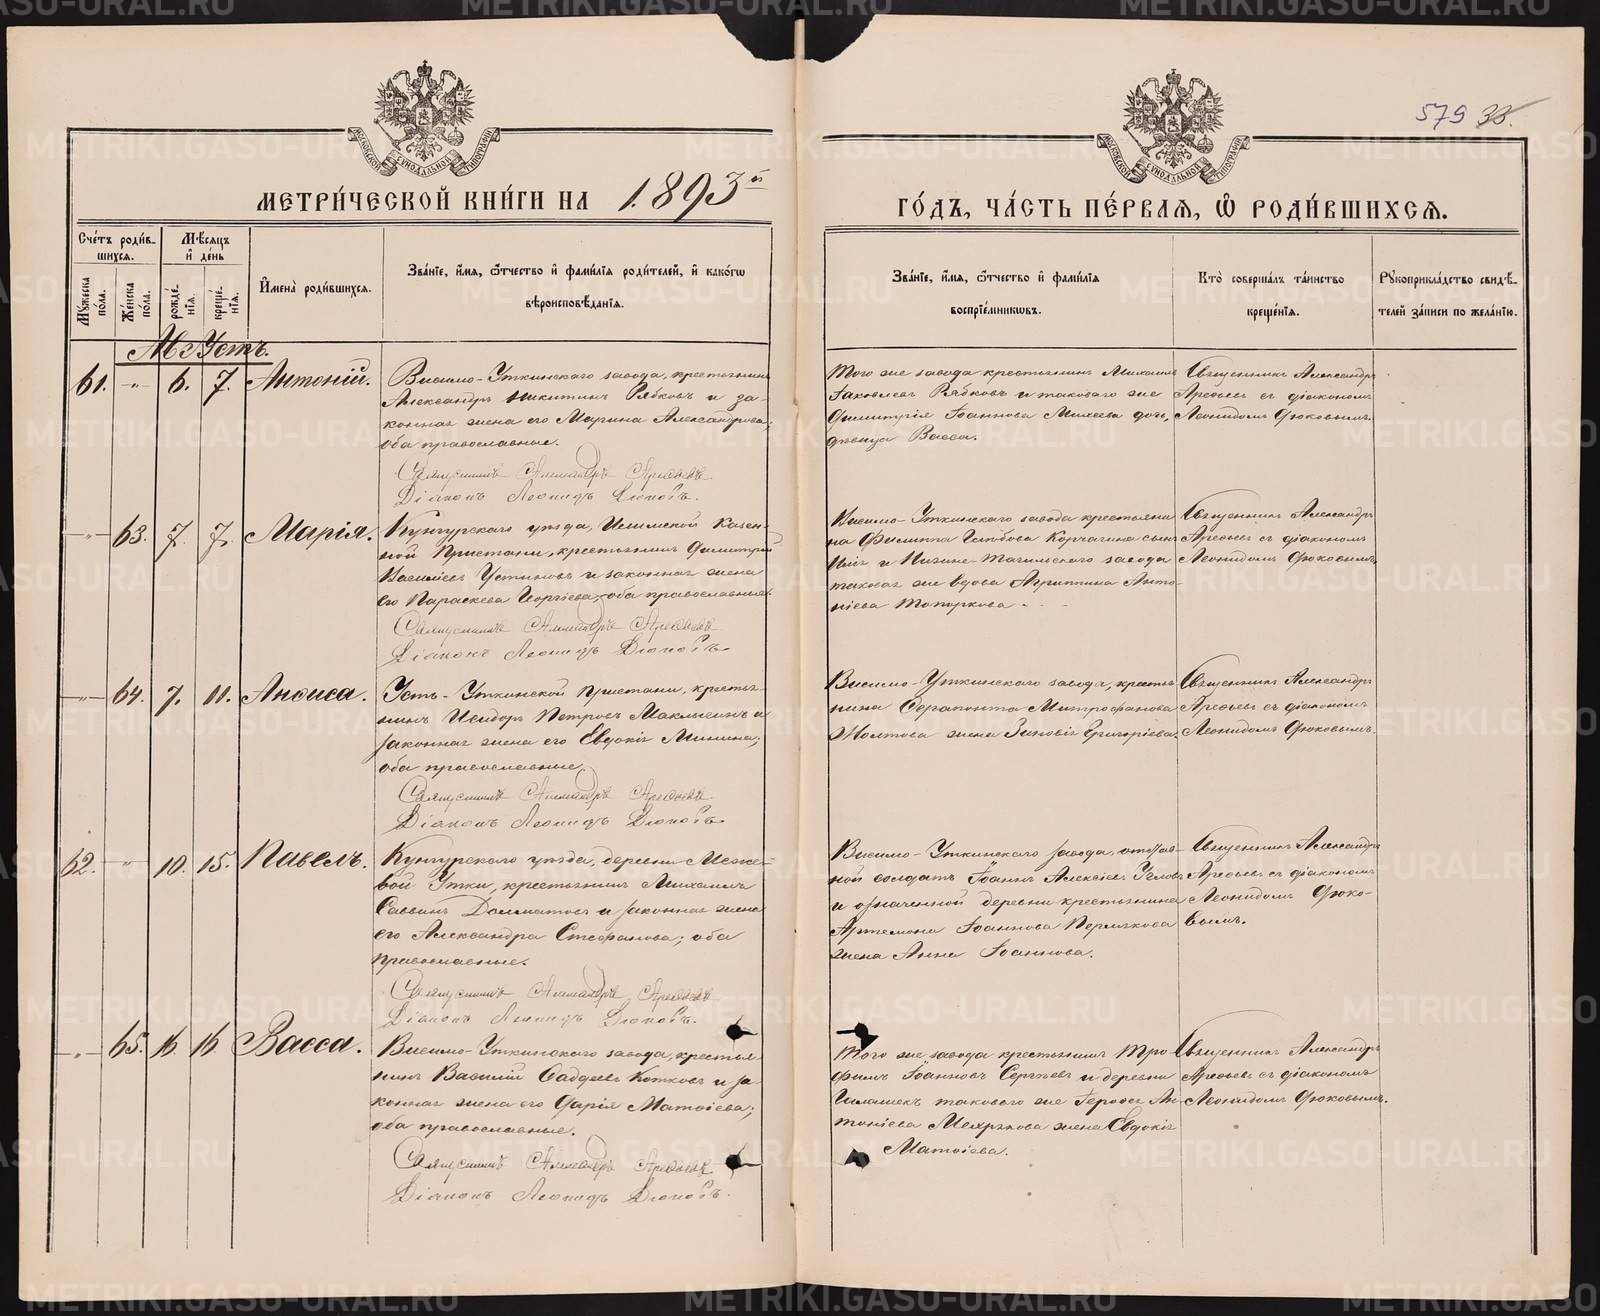 579 33.
МЕТРИ́ЧЕСКОЙ КНИ́ГИ НА 1893й
ГО́ДЪ, ЧА́СТЬ ПЕ́РВАЯ, Ѿ РОДИ́ВШИХСЯ.
Сче́тъ роди́в-
шихся.
Мѣ́сяцъ
и҆ де́нь
Му́жеска по́ла.
Же́нска по́ла.
рожде́нїя.
креще́нїя.
И҆мена̀ роди́вшихся.
Зва́нїе, и҆́мя, ѻ҆́тчество и҆ фами́лїя роди́телей, и҆ како́гѡ
вѣроисповѣ́данїя.
Зва́нїе, и҆́мя, ѻ҆́тчество и҆ фами́лїя
воспрїе́мниковъ.
Кто̀ соверша́лъ та́инство
креще́нїя.
Рꙋкоприкла́дство свидѣ́-
телей за́писи по жела́нїю.
Августъ.
61. -„- 6. 7. Антоній.
Висимо-Уткинскаго завода, крестьянинъ
Александръ Никитинъ Рябковъ и за-
конная жена его Марина Александрова;
оба православные.
Священникъ Александръ Арефьевъ
Діаконъ Леонидъ Дюковъ.
Того же завода крестьянинъ Михаилъ
Іаковлевъ Рябковъ и таковаго же
Димитрія Іоаннова Михеева дочь,
девица Васса.
Священникъ Александръ
Арефьев съ діакономъ
Леонидомъ Дюковымъ.
-„- 63. 7. 7. Марія.
Кунгурскаго уѣзда, Илимской Казен-
ной Пристани, крестьянинъ Димитрій
Василіев Устиновъ и законная жена
его Параскева Георгіева; оба православные.
Священникъ Александръ Арефьевъ
Діаконъ Леонидъ Дюковъ.
Висимо-Уткинскаго завода крестьяни-
на Филиппа Корчагина сынъ
и Нижне-Тагильскаго завода
таковая же вдова Агриппина Анто-
ніева Топоркова.
Священникъ Александръ
Арефьев съ діакономъ
Леонидомъ Дюковымъ.
-„- 64. 7. 11. Анѳиса.
Усть-Уткинской пристани, кресть-
янинъ Исидоръ Петровъ и
законная жена его Евдокія Минина;
оба православные.
Священникъ Александръ Арефьевъ
Діаконъ Леонидъ Дюковъ.
Висимо-Уткинскаго завода, кресть-
янина Серапіонта Митрофанова
Желтова жена Зиновія Григоріева.
Священникъ Александръ
Арефьев съ діакономъ
Леонидомъ Дюковымъ.
62. -„- 10. 15. Павелъ.
Кунгурскаго уѣзда, деревни Меже-
вой Утки, крестьянинъ Михаилъ
Саввинъ Долматовъ и законная жена
его Александра Стефанова; оба
православные.
Священникъ Александръ Арефьевъ
Діаконъ Леонидъ Дюковъ.
Висимо-Уткинскаго завода, отстав-
ной солдатъ Іоаннъ Алексіев
и означенной деревни крестьянина
Артемона Іоаннова Пермякова
жена Анна Іоаннова.
Священникъ Александръ
Арефьев съ діакономъ
Леонидомъ Дюко-
вымъ.
-„- 65. 16. 16. Васса.
Висимо-Уткинскаго завода, крестья-
нинъ Василій Фадеевъ Котковъ и за-
конная жена его Дарія Матѳіева;
оба православные.
Священникъ Александръ Арефьевъ
Діаконъ Леонидъ Дюковъ.
Того же завода крестьянинъ Тро-
фимъ Іоанновъ Сергѣевъ и деревни
таковаго же Ан-
тоніева жена Евдокія
Матѳіева.
Священникъ Александръ
Арефьев съ діакономъ
Леонидомъ Дюковымъ.
METRIKI.GASO-URAL.RU